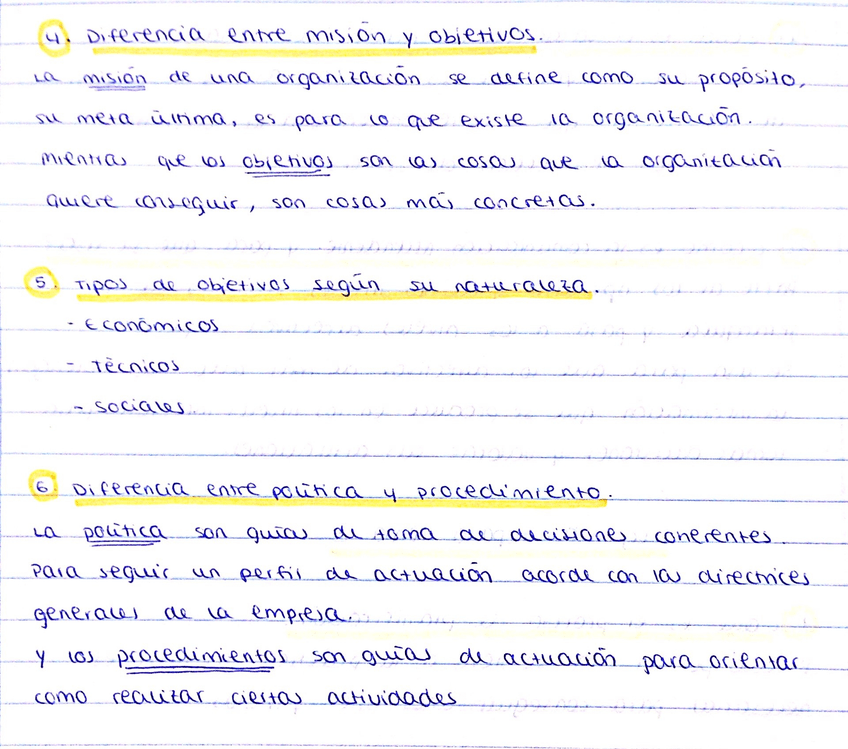 4. Diferencia entre misión y objetivos.
La misión de una organización se define como su propósito,
su meta última, es para lo que existe la organización.
Mientras que los objetivos son las cosas que la organización
quiere conseguir, son cosas más concretas.
5. Tipos de objetivos según su naturaleza.
- Económicos
- Técnicos
- Sociales
6. Diferencia entre política y procedimiento.
La política son guías de toma de decisiones coherentes.
Para seguir un perfil de actuación acorde con las directrices
generales de la empresa.
Y los procedimientos son guías de actuación para orientar
como realizar ciertas actividades